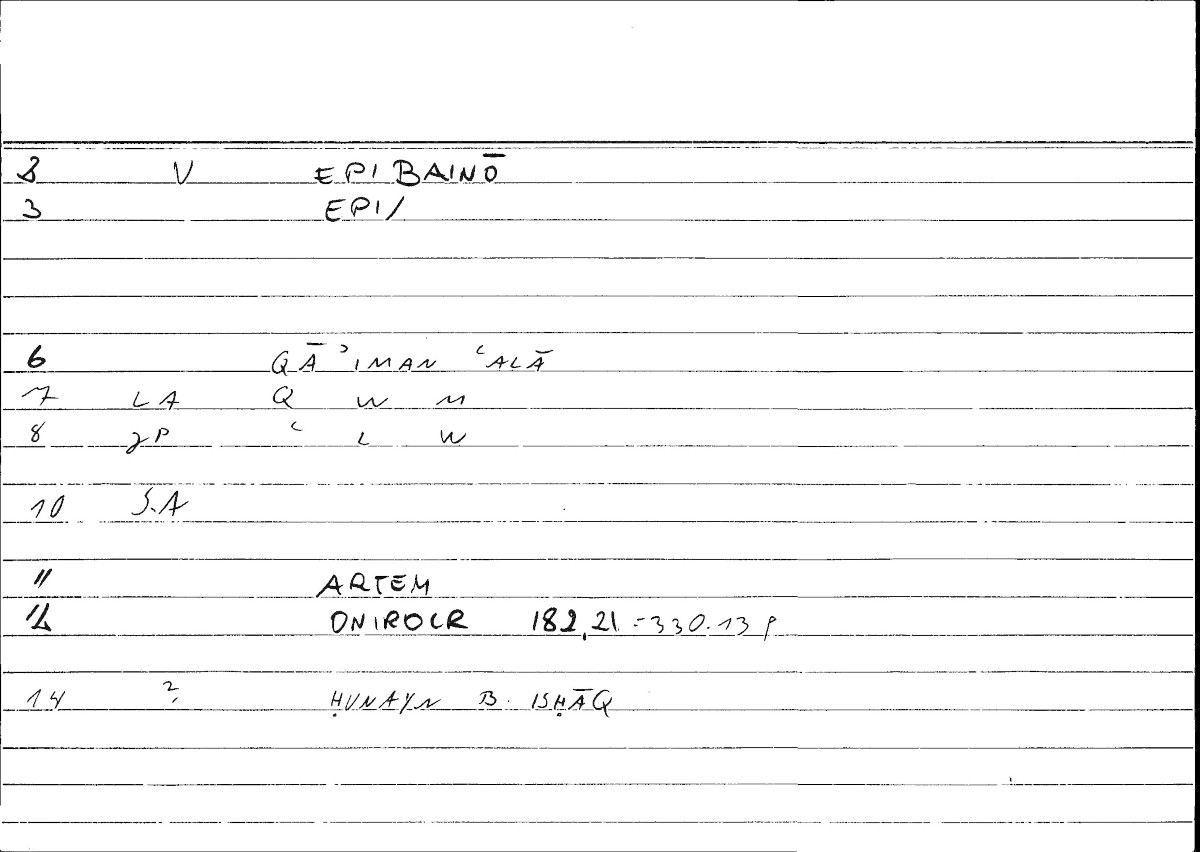 2 V EPIBAINŌ
3 EPI/
6 QĀʾIMAN ʿALĀ
7 LA Q W M
8 2P ʿ L W
10 S.A
11 ARTEM
12 ONIROCR 182,21 = 330.13 p
14 ? ḤUNAYN B. ISḤĀQ